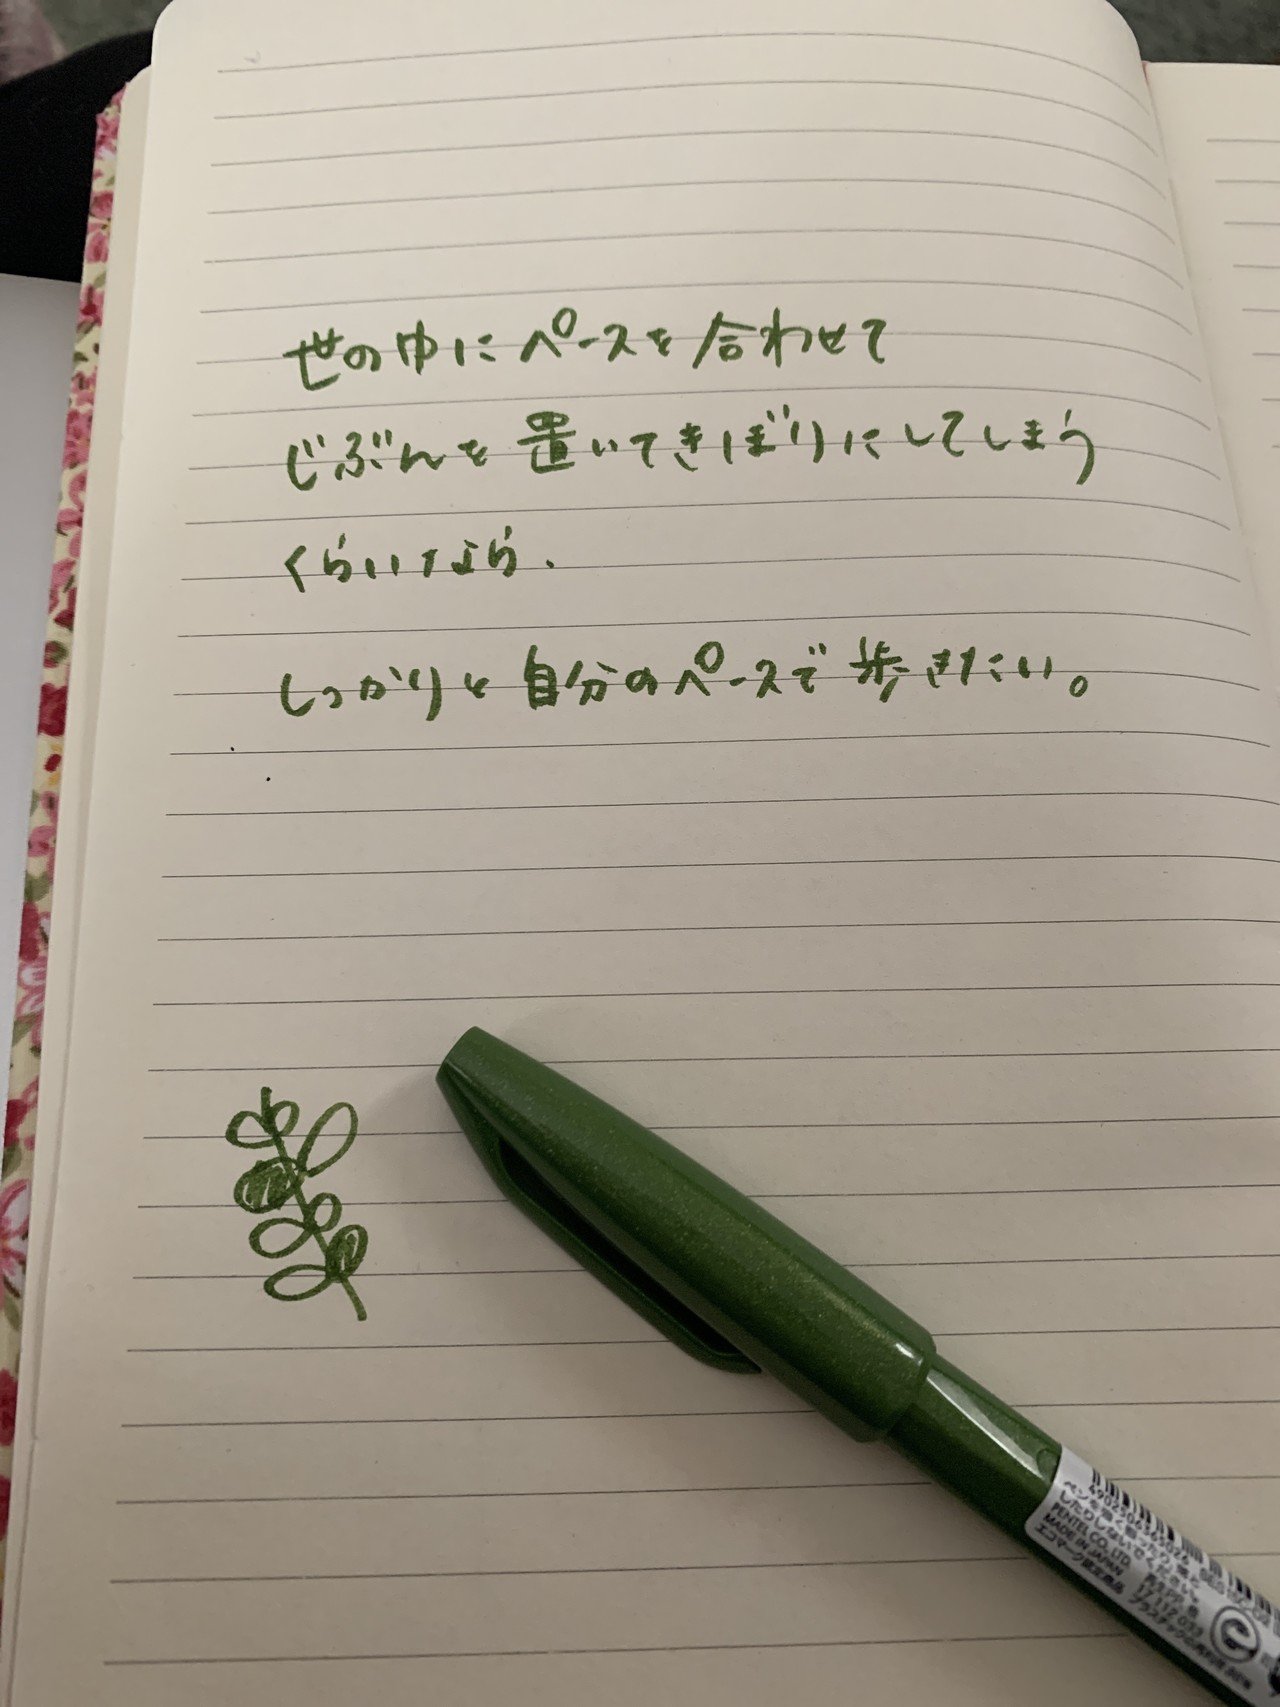 世の中にペースを合わせて
じぶんを置いてきぼりにしてしまう
くらいなら.
しっかりと自分のペースで歩きたい。
PENTEL CO.,LTD.
MADE IN JAPAN
エコマーク認定商品